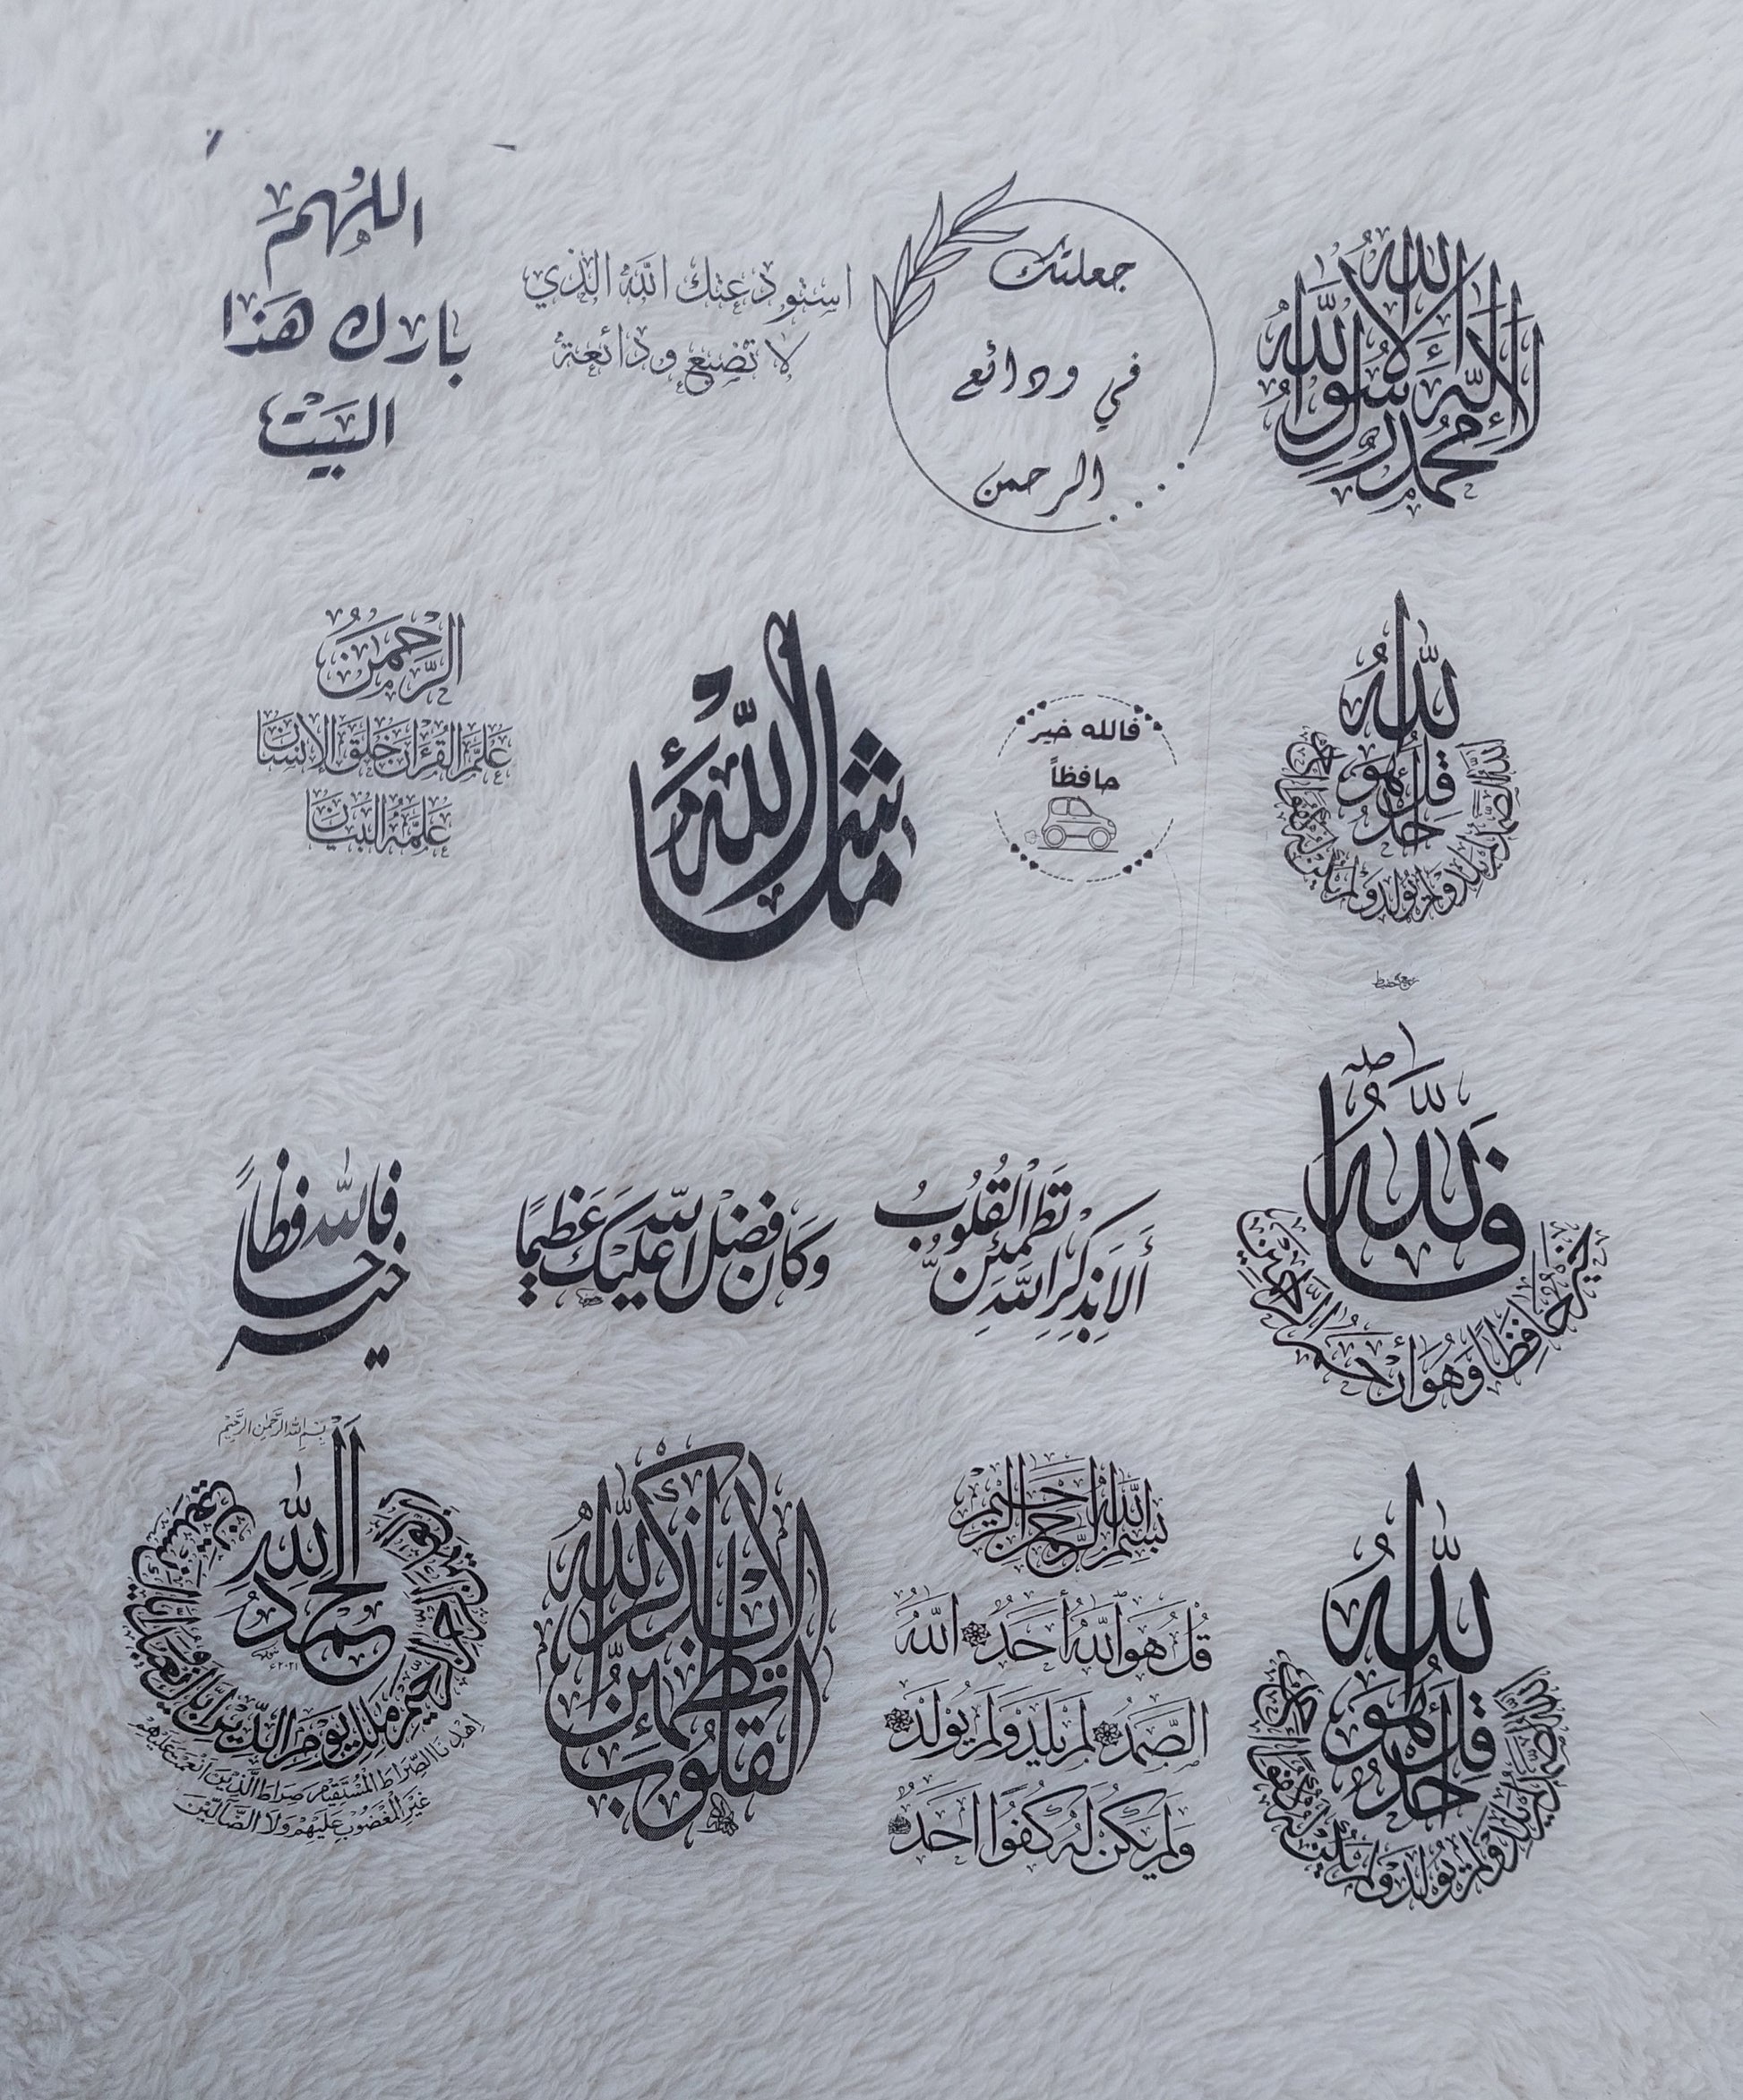 اللهم
بارك هذا
البيت
استودعتك الله الذي
لا تضيع ودائعة
جعلتك
في ودائع
الرحمن
لا إله إلا الله
محمد رسول الله
الرَّحْمَنُ
عَلَّمَ القُرْآنَ خَلَقَ الإِنسَانَ
عَلَّمَهُ البَيَانَ
ما شاء الله
فالله خير
حافظاً
قل هو الله أحد
الله الصمد لم يلد ولم يولد ولم يكن له كفوا أحد
فالله خير
حافظاً
وَكَانَ فَضْلُ اللَّهِ عَلَيْكَ عَظِيمًا
أَلَا بِذِكْرِ اللَّهِ
تَطْمَئِنُّ الْقُلُوبُ
فَاللَّهُ
خَيْرٌ حَافِظًا وَهُوَ أَرْحَمُ الرَّاحِمِينَ
بِسْمِ اللهِ الرَّحْمٰنِ الرَّحِيْمِ
اَلْحَمْدُ لِلّٰهِ
رب العالمين الرحمن الرحيم ملك يوم الدين إياك نعبد وإياك نستعين
اِهْدِنَا الصِّرَاطَ الْمُسْتَقِيْمَ صِرَاطَ الَّذِيْنَ اَنْعَمْتَ عَلَيْهِمْ
غَيْرِ الْمَغْضُوْبِ عَلَيْهِمْ وَلَا الضَّآلِّيْنَ
ألا بذكر الله
تطمئن
القلوب
بسم الله الرحمن الرحيم
قُلْ هُوَ اللَّهُ أَحَدٌ اللَّهُ
الصَّمَدُ لَمْ يَلِدْ وَلَمْ يُولَدْ
وَلَمْ يَكُن لَّهُ كُفُوًا أَحَدٌ
قل هو الله أحد
الله الصمد لم يلد ولم يولد ولم يكن له كفوا أحد